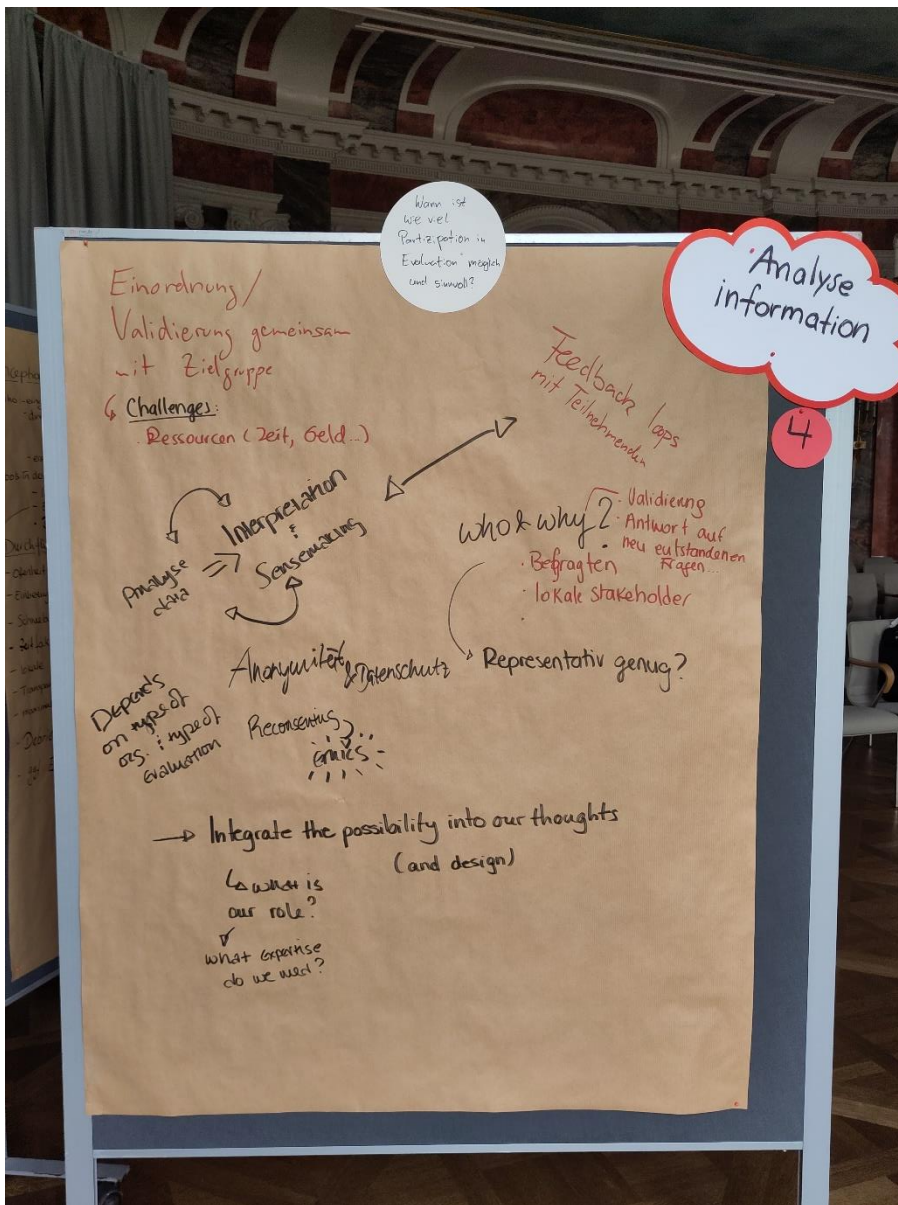 Wann ist
wie viel
Partizipation in
Evaluation möglich
und sinnvoll?
Analyse
information
4
Einordnung/
Validierung gemeinsam
mit Zielgruppe
↳ Challenges:
Ressourcen (Zeit, Geld...)
Feedback loops
mit Teilnehmenden
Interpretation
&
Sensemaking
Analyse
data
who & why?
· Validierung
· Antwort auf
neu entstandenen
Fragen...
· Befragten
· lokale Stakeholder
Representativ genug?
Anonymität
& Datenschutz
Depends
on type of
org. & type of
Evaluation
Reconsenting
Ethics
→ Integrate the possibility into our thoughts
(and design)
↳ what is
our role?
what expertise
do we need?